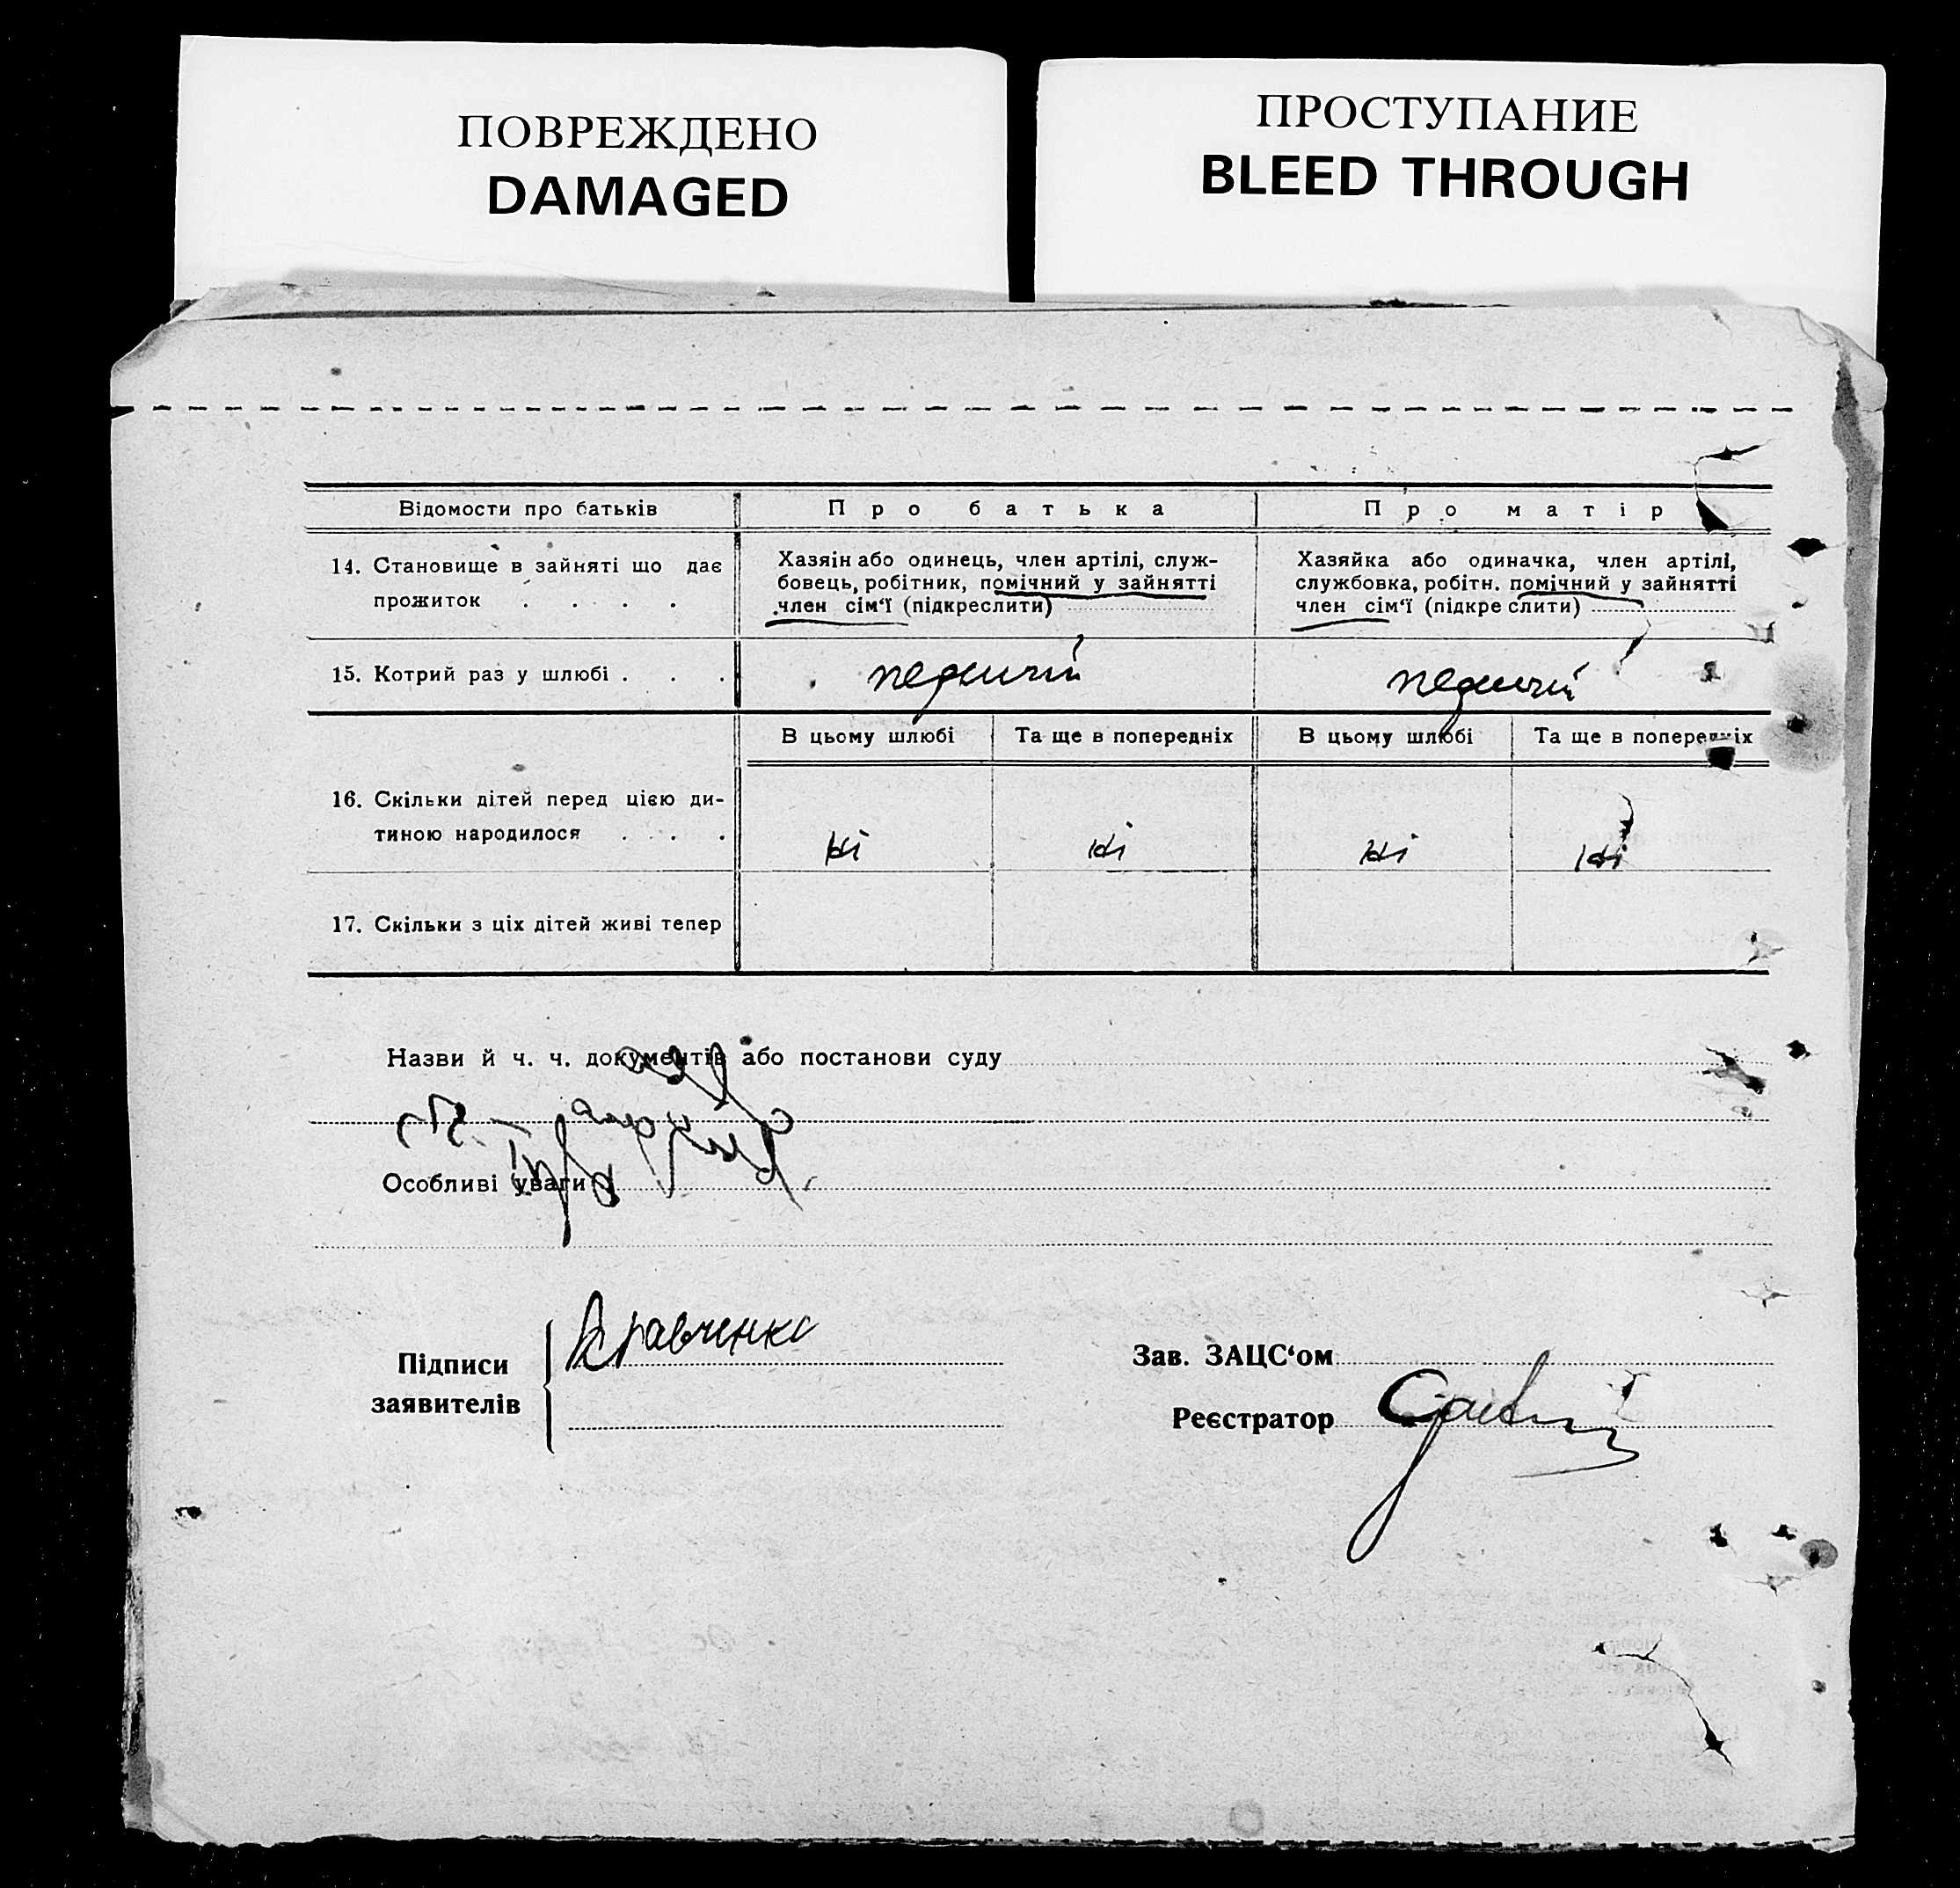 ПОВРЕЖДЕНО
DAMAGED
ПРОСТУПАНИЕ
BLEED THROUGH
Відомости про батьків
Про батька
Про матір
14. Становище в зайняті що дає
прожиток . . . .
Хазяін або одинець, член артілі, служ-
бовець, робітник, помічний у зайнятті
член сім‘ї (підкреслити)
Хазяйка або одиначка, член артілі,
службовка, робітн. помічний у зайнятті
член сім‘ї (підкреслити)
15. Котрий раз у шлюбі . . .
первий
первий
В цьому шлюбі
Та ще в попередніх
В цьому шлюбі
Та ще в попередніх
16. Скільки дітей перед цією ди-
тиною народилося . . .
ні
ні
ні
ні
17. Скільки з ціх дітей живі тепер
Назви й ч. ч. документів або постанови суду
Особливі уваги
Підписи
заявителів
Кравченко
Зав. ЗАЦС‘ом
Реєстратор